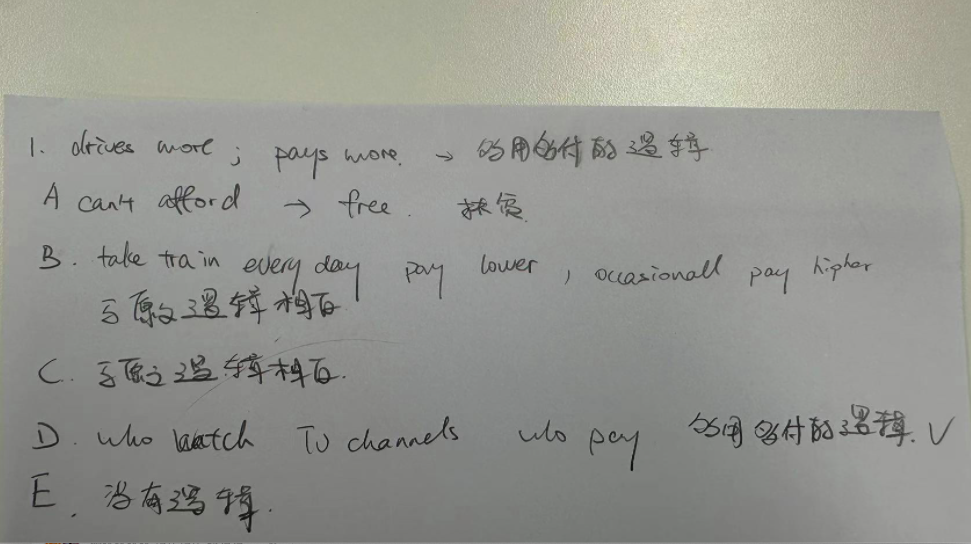 1. drives more ; pays more. → 多用多付的逻辑
A can't afford → free. 扶贫
B. take train every day pay lower , occasionall pay higher
与原文逻辑相反
C. 与原文逻辑相反.
D. who watch TV channels who pay 多用多付的逻辑. √
E. 没有逻辑.